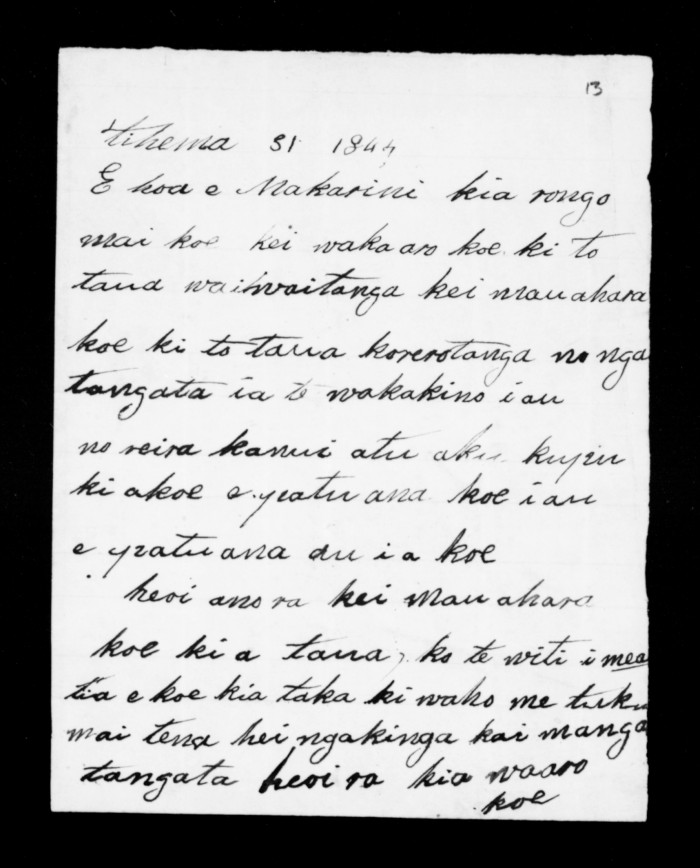 13
tihema 31 1844
E hoa e Makarini kia rongo
mai koe kei wakaaro koe ki to
taua waiwaitanga kei mauahara
koe ki to taua korerotanga no nga
tangata ia te wakakino i au
no reira kanui atu aku kupu
ki akoe e patu ana koe i au
e patu ana au i a koe
heoi ano ra kei mauahara
koe ki a taua, ko te witi i mea
tia e koe kia taka ki waho me tuku
mai tena hei ngakinga kai manga
tangata heoi ra kia waaro
koe